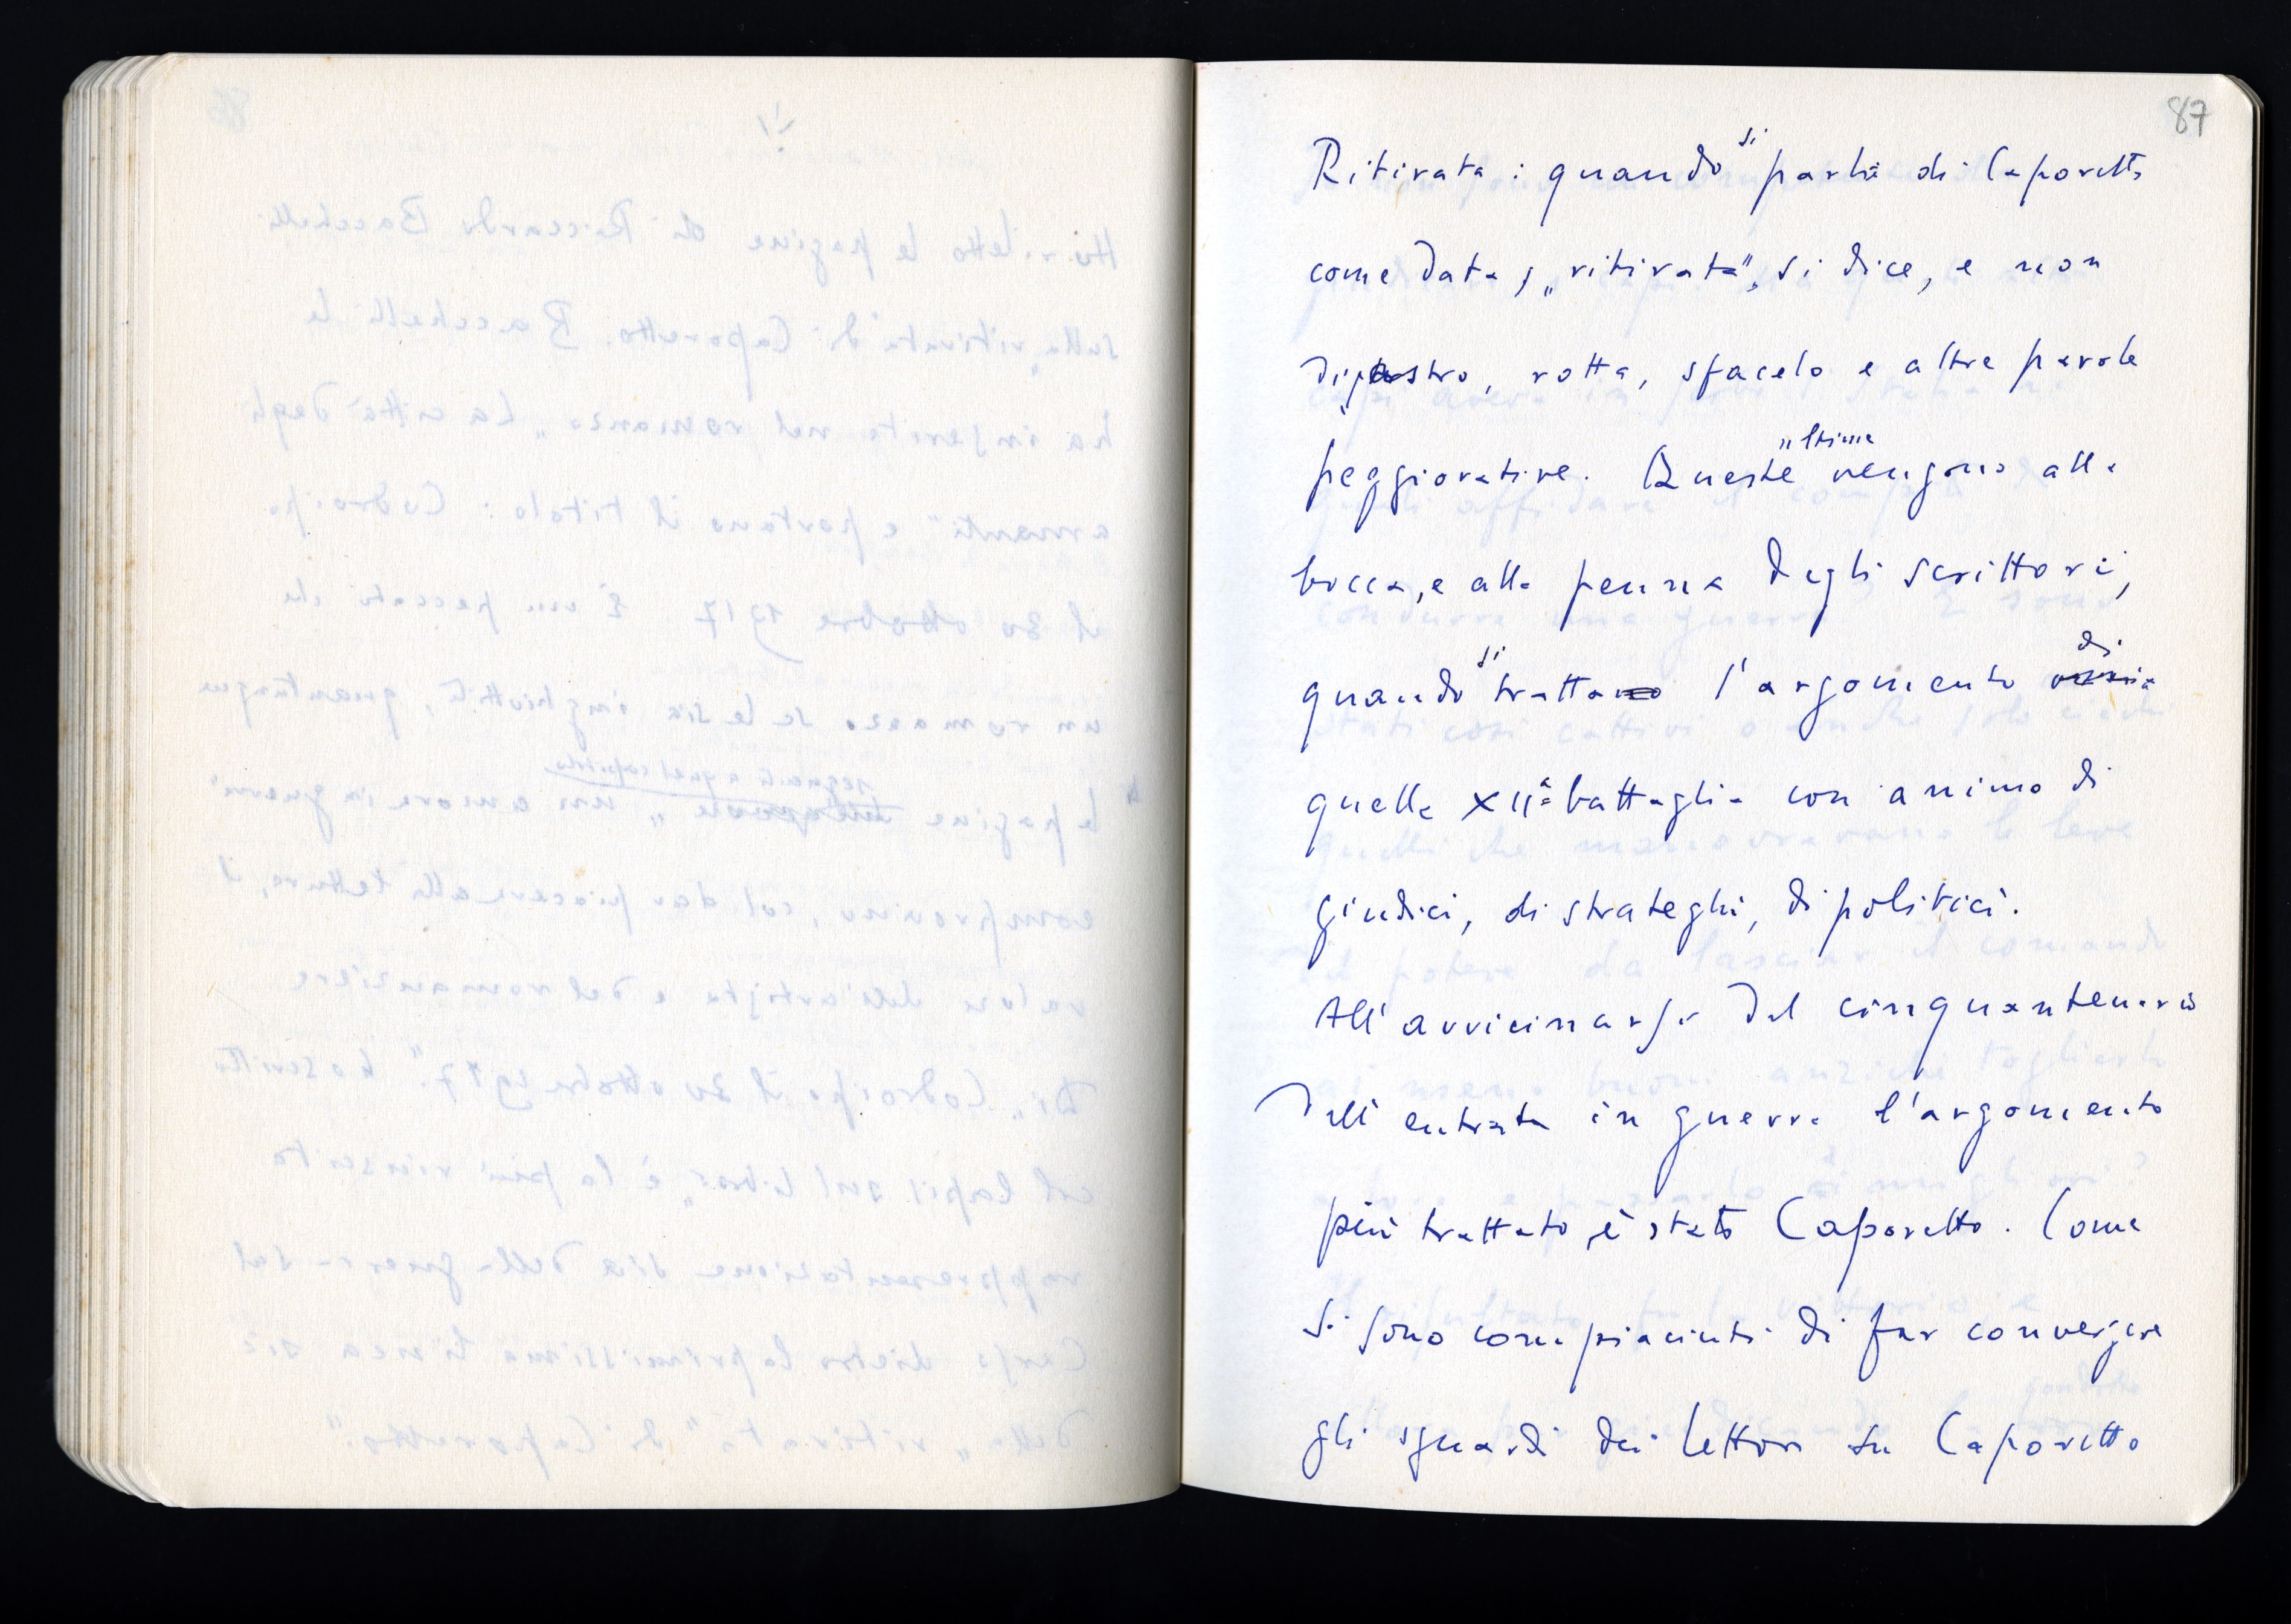 87
Ritirata : quando si parla di Caporetto
come data, „ritirata”, si dice, e non
disastro, rotta, sfacelo e altre parole
peggiorative. Queste ultime vengono alla
bocca, e alla penna degli scrittori,
quando si tratta l'argomento di
quella XIIª battaglia con animo di
giudici, di strateghi, di politici.
All'avvicinarsi del cinquantenario
dell'entrata in guerra l'argomento
più trattato è stato Caporetto. Come
si sono compiaciuti di far convergere
gli sguardi dei lettori su Caporetto